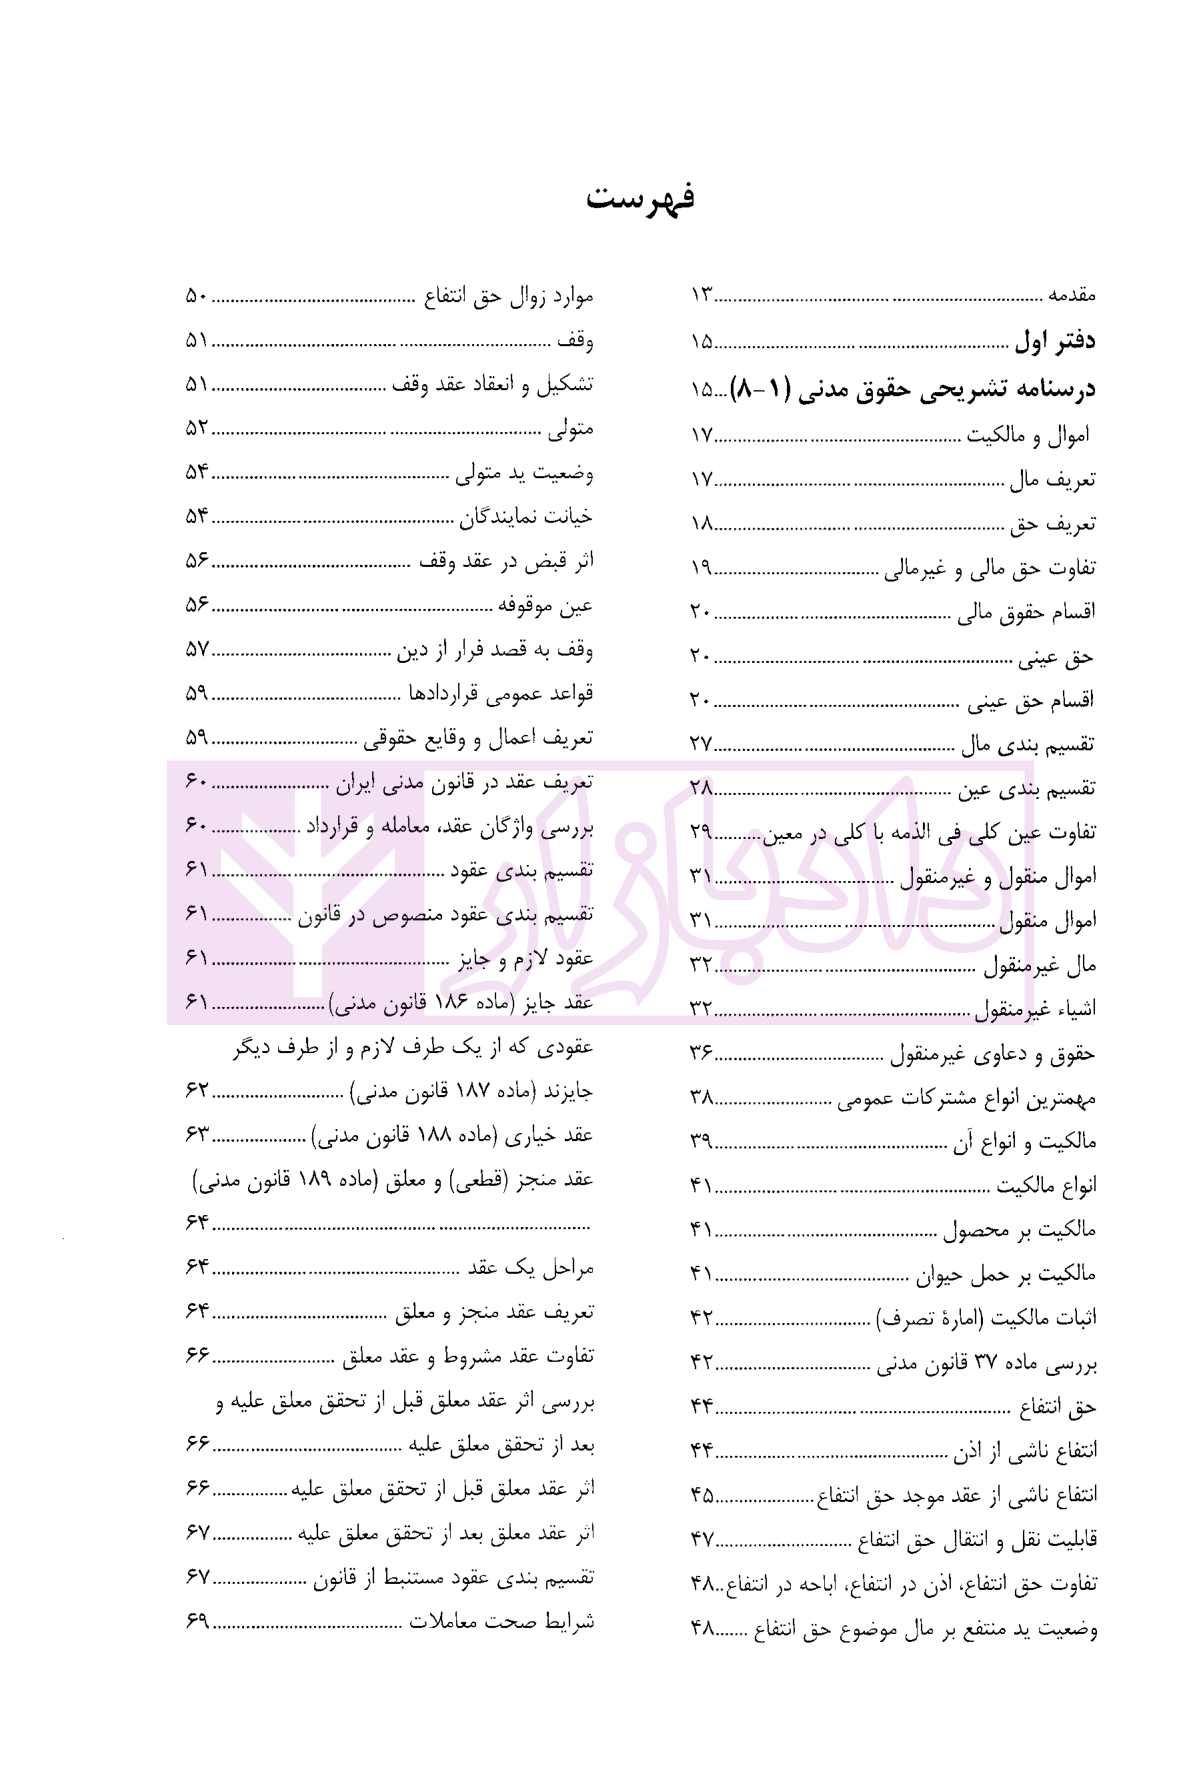 فهرست
مقدمه ........................ ۱۳
دفتر اول ........................ ۱۵
درسنامه تشریحی حقوق مدنی (۱-۸)... ۱۵
اموال و مالکیت ........................ ۱۷
تعریف مال ........................ ۱۷
تعریف حق ........................ ۱۸
تفاوت حق مالی و غیرمالی ........................ ۱۹
اقسام حقوق مالی ........................ ۲۰
حق عینی ........................ ۲۰
اقسام حق عینی ........................ ۲۰
تقسیم بندی مال ........................ ۲۷
تقسیم بندی عین ........................ ۲۸
تفاوت عین کلی فی الذمه با کلی در معین.......... ۲۹
اموال منقول و غیرمنقول ........................ ۳۱
اموال منقول ........................ ۳۱
مال غیرمنقول ........................ ۳۲
اشیاء غیرمنقول ........................ ۳۲
حقوق و دعاوی غیرمنقول ........................ ۳۶
مهمترین انواع مشترکات عمومی ........................ ۳۸
مالکیت و انواع آن ........................ ۳۹
انواع مالکیت ........................ ۴۱
مالکیت بر محصول ........................ ۴۱
مالکیت بر حمل حیوان ........................ ۴۱
اثبات مالکیت (امارهٔ تصرف) ........................ ۴۲
بررسی ماده ۳۷ قانون مدنی ........................ ۴۲
حق انتفاع ........................ ۴۴
انتفاع ناشی از اذن ........................ ۴۴
انتفاع ناشی از عقد موجد حق انتفاع.................... ۴۵
قابلیت نقل و انتقال حق انتفاع ........................ ۴۷
تفاوت حق انتفاع، اذن در انتفاع، اباحه در انتفاع.. ۴۸
وضعیت ید منتفع بر مال موضوع حق انتفاع ....... ۴۸
موارد زوال حق انتفاع ........................ ۵۰
وقف ........................ ۵۱
تشکیل و انعقاد عقد وقف ........................ ۵۱
متولی ........................ ۵۲
وضعیت ید متولی ........................ ۵۴
خیانت نمایندگان ........................ ۵۴
اثر قبض در عقد وقف ........................ ۵۶
عین موقوفه ........................ ۵۶
وقف به قصد فرار از دین ........................ ۵۷
قواعد عمومی قراردادها ........................ ۵۹
تعریف اعمال و وقایع حقوقی ........................ ۵۹
تعریف عقد در قانون مدنی ایران ........................ ۶۰
بررسی واژگان عقد، معامله و قرارداد .................. ۶۰
تقسیم بندی عقود ........................ ۶۱
تقسیم بندی عقود منصوص در قانون ................ ۶۱
عقود لازم و جایز ........................ ۶۱
عقد جایز (ماده ۱۸۶ قانون مدنی)........................ ۶۱
عقودی که از یک طرف لازم و از طرف دیگر
جایزند (ماده ۱۸۷ قانون مدنی) ........................ ۶۲
عقد خیاری (ماده ۱۸۸ قانون مدنی) .................... ۶۳
عقد منجز (قطعی) و معلق (ماده ۱۸۹ قانون مدنی)
........................ ۶۴
مراحل یک عقد ........................ ۶۴
تعریف عقد منجز و معلق ........................ ۶۴
تفاوت عقد مشروط و عقد معلق ........................ ۶۶
بررسی اثر عقد معلق قبل از تحقق معلق علیه و
بعد از تحقق معلق علیه ........................ ۶۶
اثر عقد معلق قبل از تحقق معلق علیه................ ۶۶
اثر عقد معلق بعد از تحقق معلق علیه ................ ۶۷
تقسیم بندی عقود مستنبط از قانون .................... ۶۷
شرایط صحت معاملات ........................ ۶۹
دادبازار